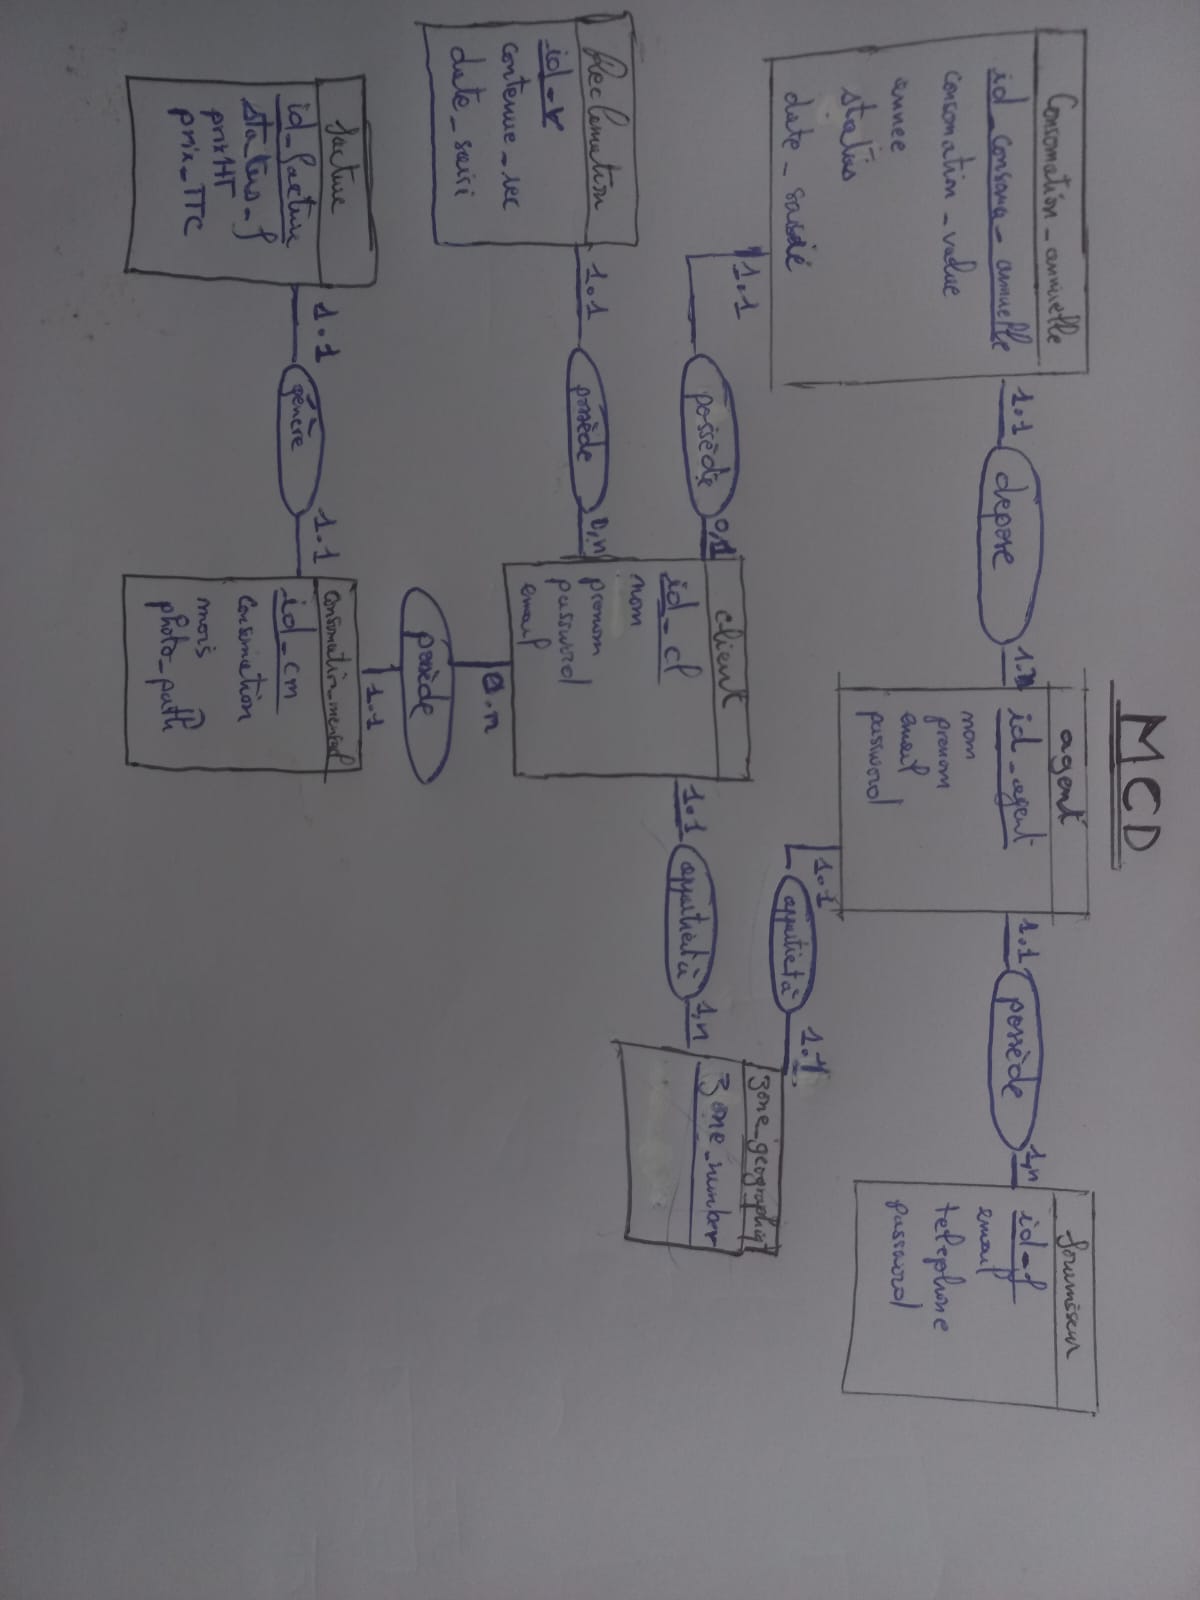 MCD
Consomation_annuelle
id_consoma_annuelle
consomation_value
annee
status
date_saisie
1.1
depose
agent
id_agent
nom
prenom
email
password
1.1
possède
1,n
fournisseur
id_f
email
telephone
password
1.1
appartient à
zone_geographiq
zone_number
1.1
possède
client
id_cl
nom
prenom
password
email
1.1
appartient à
1,n
Reclamation
id_r
contenue_rec
date_saisi
1.1
possède
0,n
0.n
possède
1.1
facture
id_facture
status_f
prixHT
prix_TTC
1.1
génère
1.1
consomation_mensuel
id_cm
consomation
mois
photo_path